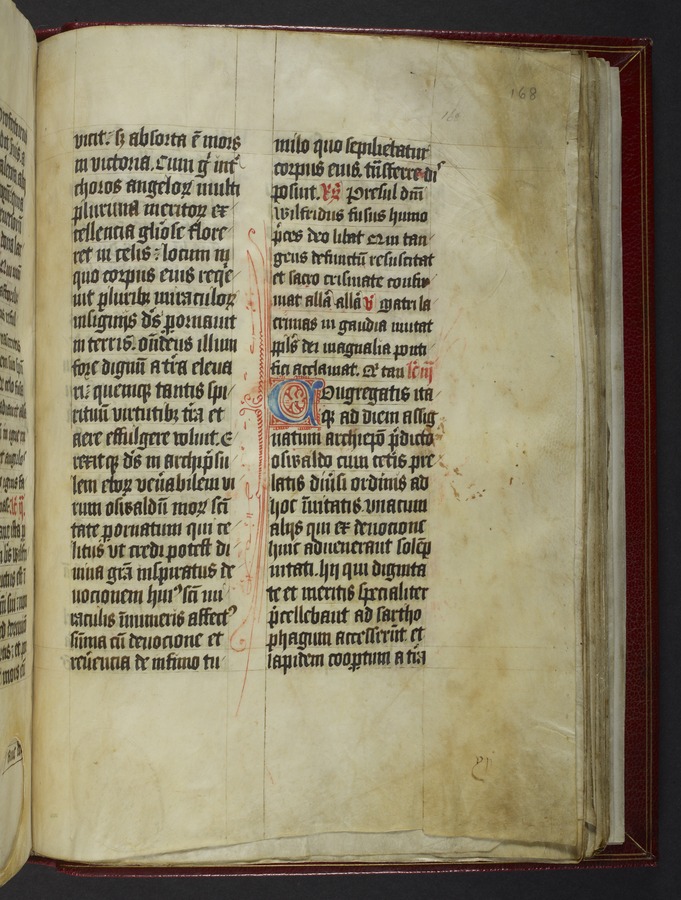 168
vicit. sꝫ absorta ē mors
in victoria. Cum gͥ int̾
choros angeloꝝ multi
plurima meritoꝝ ex
cellencia gl̄iose flore
ret in celis: locum in
quo corpus eius reqͥe
uit pluribꝫ miraculoꝝ
insigniis d̄s ꝓornauit
in terris. ostendēs illum
fore dignū a t̄ra eleua
ri: quemqꝫ tantis spi
rituū virtutibꝫ t̄ra et
aere effulgere voluit. E
rexitqꝫ d̄s in archip̄su
lem eboꝝ ven̄abilem vi
rum oswaldū moꝝ sc̄i
tate ꝓornatum qui ce
litus vt credi potest di
uina gr̄a inspiratus de
uocionem huiꝰ sc̄i mi
raculis īnumeris affectꝰ
sūma cū deuocione et
reuēencia de infimo tu
milo quo sepiliebatur
corpus eius. tn̄sferre di
posuit. V̄ Presul dn̄i
wilfridus fusus humo
p̄ces deo libat Et in tan
gens defunctū resuscitat
et sacro crismate confir
mat all̄a all̄a V̄ Matri la
crimas in gaudia mutat
pp̄ls dei magnalia ponti
fici acclamat. Et tan lc̄ iij
Congregatis ita
qꝫ ad diem assig
natum archiepō p̄dicto
oswaldo cum cet̄is pre
latis diūsi ordinis ad
hoc īuitatis. vnacum
aliis qui ex deuocione
huic aduenerant solēp
nitati. hii qui dignita
te et meritis specialiter
p̄cellebant ad sartho
phagum accesserūt et
lapidem coop̄tum a t̄ra